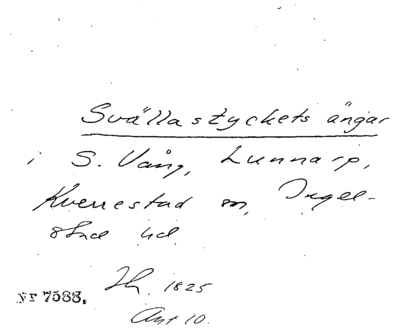 Svällastyckets ängar
i S. Vång, Lunnarp,
Kverrestad sn, Ingel-
stad hd.
1825
nr 7588.
Akt 10.